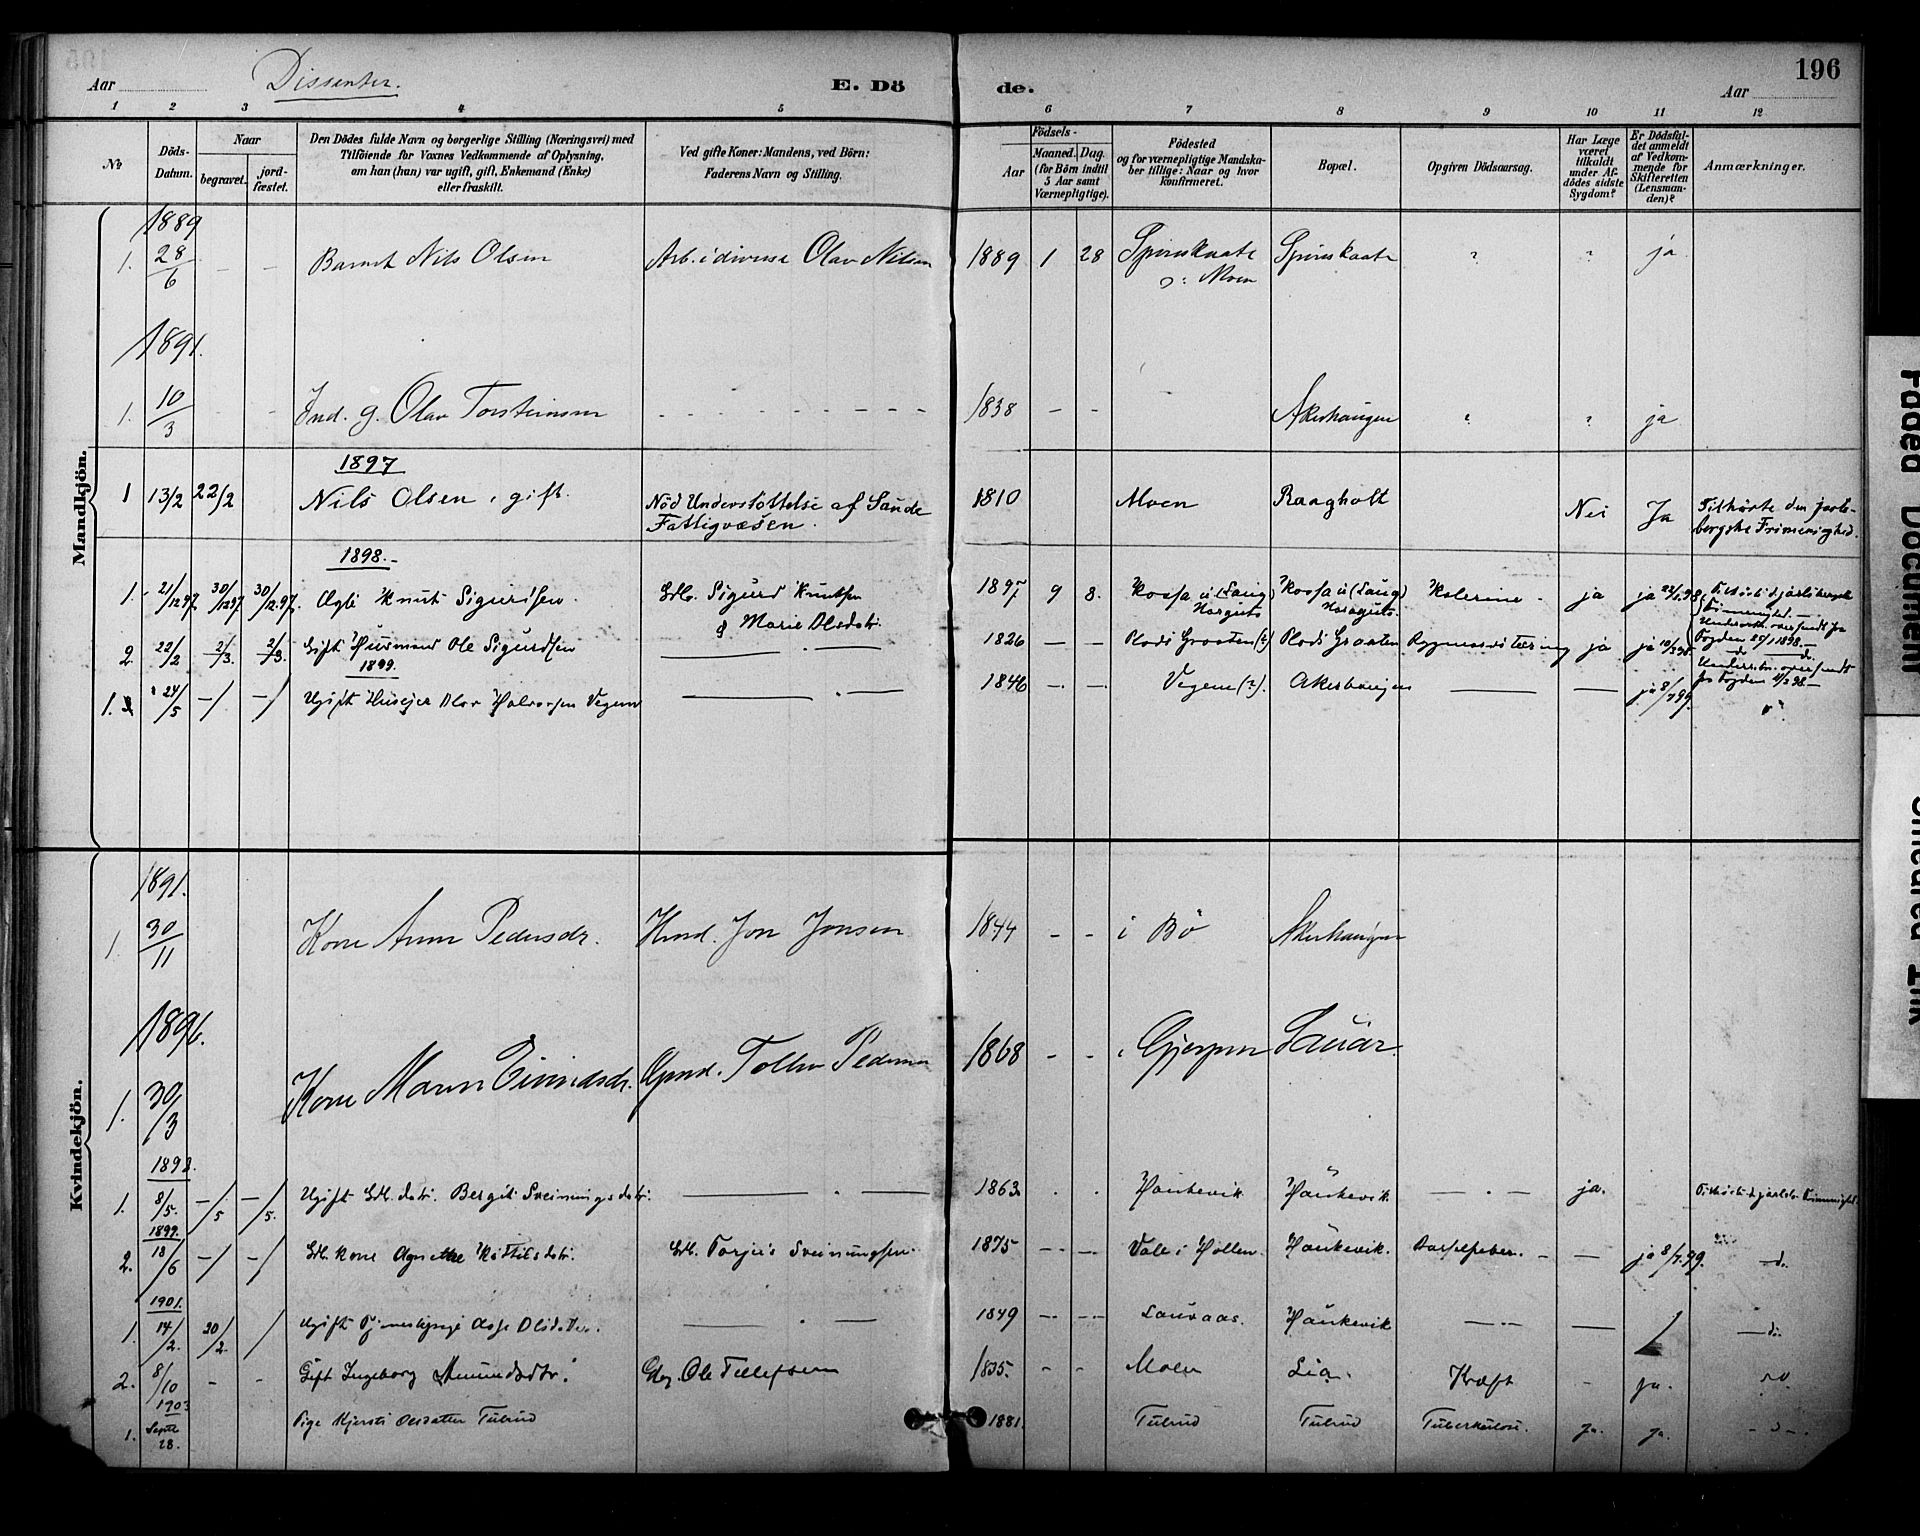 196
Aar
Dissenter.
E. Dö
de.
Aar
1 2 3 4 5 6 7 8 9 10 11 12
No
Döds-
Datum.
Naar
begravet.
jord-
fæstet.
Den Dödes fulde Navn og borgerlige Stilling (Næringsvei) med
Tilföiende for Voxnes Vedkommende af Oplysning,
om han (hun) var ugift, gift, Enkemand (Enke)
eller fraskilt.
Ved gifte Koner: Mandens, ved Börn:
Faderens Navn og Stilling.
Födsels-
Aar
Maaned. Dag.
(for Börn indtil
5 Aar samt
Værnepligtige).
Födested
og for værnepligtige Mandska-
ber tillige: Naar og hvor
konfirmeret.
Bopæl.
Opgiven Dödsaarsag.
Har Læge
været
tilkaldt
under Af-
dödes sidste
Sygdom?
Er Dödsfal-
det anmeldt
af Vedkom-
mende for
Skifteretten
(Lensman-
den)?
Anmærkninger.
Mandkjön.
1889
1. 28/6 - - Barnet Nils Olsen Arb. i diverse Olav Nilsen 1889 1 28 Spiriskaate Spiriskaate ja
Moen
1891.
1. 10/3 - - Ind. g. Olav Torsteinsen 1838 - - Akerhaugen ja
1897
1 13/2 22/2 Nils Olsen, gift. Nöd Understöttelse af Saude 1810 Moen Raagholt Nei Ja Tilhörte den jarls-
Fattigvæsen. bergske Frimenighed.
1898.-
1. 21/1297 30/1297 30/12.97. Ægte Knut Sigurdsen. Sigurd Knutsen 1897 9 8. Kolerine - ja ja
& Marie Olsdtr.
2. 22/2 2/3. 2/3. Gift Husmand Ole Sigurdsen 1826 - - ja ja Fogden
1899.
1. 24/5 -/ -/ Ugift Huseier Olav Halvorsen Vegem 1846 - - Vegem (?). Akerhaugen ja 8/7 99.
Kvindekjön.
1891.
1. 30/11 Kone Anne Pedersdr. Hmd. Jon Jonsen 1844 - - i Bö Akerhaugen
1896.
1. 30/3 Kone Maren Eivindsdr. Gjermd. Tollev Pedersen 1868 - - i Gjerpen Sauar.
1898.
1. 8/5. -/5 -/5. Ugift datr. Bergit Sveinungsdatr. 1863 Haukevik Haukevik. ja.
1899.
2. 18/6 -/ -/ Kone Agnethe Kittilsdtr. Torjus Sveinungsen. 1875 - - Vale i Hollen. Haukevik. Barselfeber. - ja 8/7.99. do.
1901.
1. 14/2. 20/2 / Ugift Aase Olsdatter. 1849 - - Lauvaas. Haukevik do.
2. 8/10 - - Gift Ingeborg Amundsdtr. Ole Tellefsen 1835. - - Moen Lia. Kræft - ja.
1903
1. Septe 28. Pige Kjersti Olsdatter Tulrud 1881. Tulrud Tulrud Tuberkulose. Ja. ja.
Faded Document
Smeared Ink